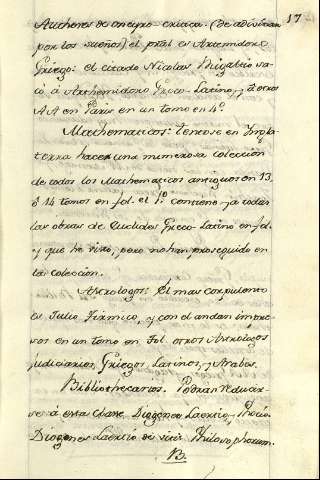 17
Authores de oneyro-criaca. (de adivinar
por los sueños) el pral es Artemidoro
Griego: el citado Nicolas Rhigaltio sa-
có á Arthemidoro Greco-Latino, y á otros
AA en Paris en un tomo en 4º
Mathematicos: Idearose en Ingla-
terra hacer una numerosa colección
de todos los Mathematicos antiguos en 13,
ó 14 tomos en fol. el 1º contiene ya todas
las obras de Euclides Greco-Latino en fol.
y que he visto, pero no han proseguido en
la coleccion.
Astrologos: El mas corpulento
es Julio Firmico, y con el andan impre-
sos en un tomo en Fol. otros Astrologos
judiciarios, Griegos, Latinos, y Arabes.
Bibliothecarios. Podran reducir-
se á esta clase, Diogenes Laercio, Phocio
Diogenes Laercio de vitis Philosophorum.
B.